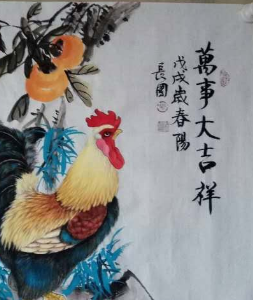 萬事大吉祥
戊戌歲春陽
長國